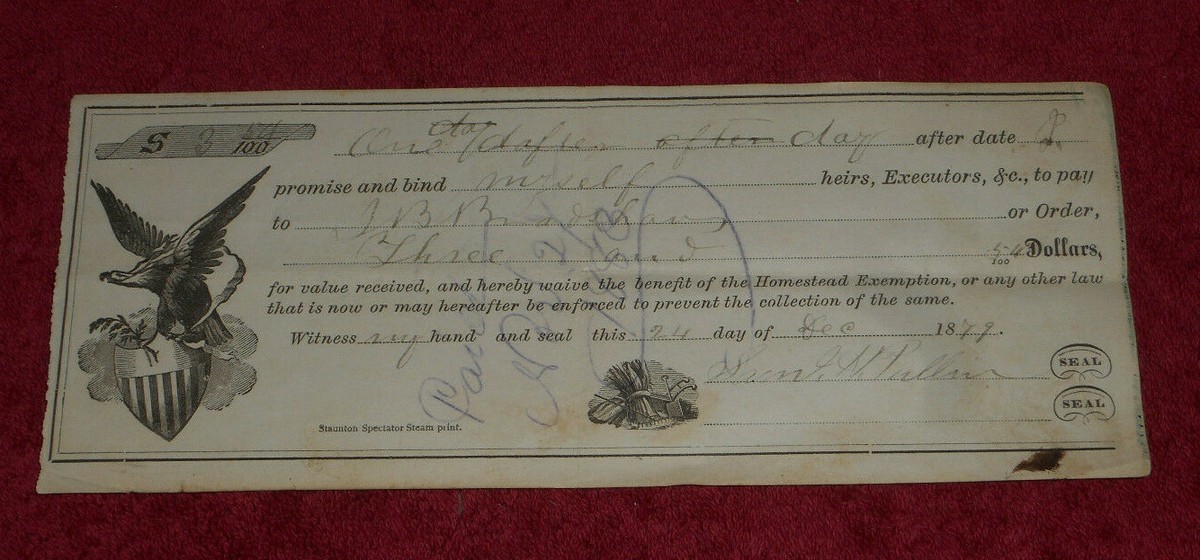 $ 3 54/100 One day after after day after date I
promise and bind myself heirs, Executors, &c., to pay
to J B Bradshaw or Order,
Three and 54/100 Dollars,
for value received, and hereby waive the benefit of the Homestead Exemption, or any other law
that is now or may hereafter be enforced to prevent the collection of the same.
Witness my hand and seal this 24 day of Dec 1879.
SEAL
SEAL
Staunton Spectator Steam print.
Paid